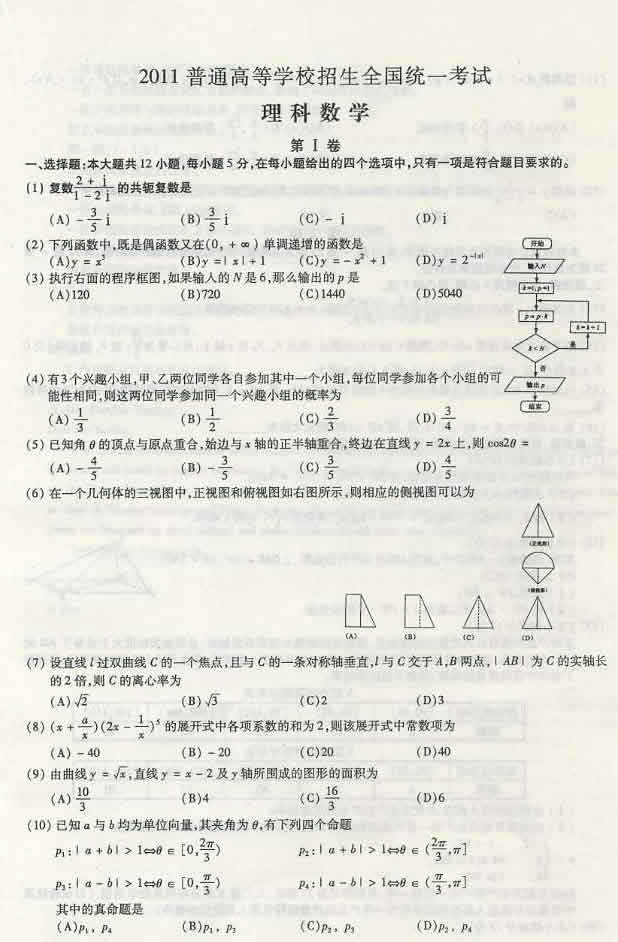 2011 普通高等学校招生全国统一考试
理科数学
第 Ⅰ 卷
一、选择题:本大题共 12 小题,每小题 5 分,在每小题给出的四个选项中,只有一项是符合题目要求的。
(1) 复数 (2 + i)/(1 - 2i) 的共轭复数是
(A) - 3/5 i (B) 3/5 i (C) - i (D) i
(2) 下列函数中,既是偶函数又在(0, + ∞) 单调递增的函数是
(A) y = x³ (B) y = | x | + 1 (C) y = - x² + 1 (D) y = 2^(-|x|)
(3) 执行右面的程序框图,如果输入的 N 是 6,那么输出的 p 是
(A)120 (B)720 (C)1440 (D)5040
开始
输入N
k=1,p=1
p=p·k
k=k+1
k<N
是
否
输出p
结束
(4) 有 3 个兴趣小组,甲、乙两位同学各自参加其中一个小组,每位同学参加各个小组的可
能性相同,则这两位同学参加同一个兴趣小组的概率为
(A) 1/3 (B) 1/2 (C) 2/3 (D) 3/4
(5) 已知角 θ 的顶点与原点重合,始边与 x 轴的正半轴重合,终边在直线 y = 2x 上,则 cos2θ =
(A) - 4/5 (B) - 3/5 (C) 3/5 (D) 4/5
(6) 在一个几何体的三视图中,正视图和俯视图如右图所示,则相应的侧视图可以为
(正视图)
(俯视图)
(A) (B) (C) (D)
(7) 设直线 l 过双曲线 C 的一个焦点,且与 C 的一条对称轴垂直,l 与 C 交于 A,B 两点,| AB | 为 C 的实轴长
的 2 倍,则 C 的离心率为
(A) √2 (B) √3 (C)2 (D)3
(8) (x + a/x)(2x - 1/x)⁵ 的展开式中各项系数的和为 2,则该展开式中常数项为
(A) - 40 (B) - 20 (C)20 (D)40
(9) 由曲线 y = √x,直线 y = x - 2 及 y 轴所围成的图形的面积为
(A) 10/3 (B)4 (C) 16/3 (D)6
(10) 已知 a 与 b 均为单位向量,其夹角为 θ,有下列四个命题
p₁:| a + b | > 1⇔θ ∈ [0, 2π/3) p₂:| a + b | > 1⇔θ ∈ (2π/3, π]
p₃:| a - b | > 1⇔θ ∈ [0, π/3) p₄:| a - b | > 1⇔θ ∈ (π/3, π]
其中的真命题是
(A) p₁, p₄ (B) p₁, p₃ (C) p₂, p₃ (D) p₂, p₄